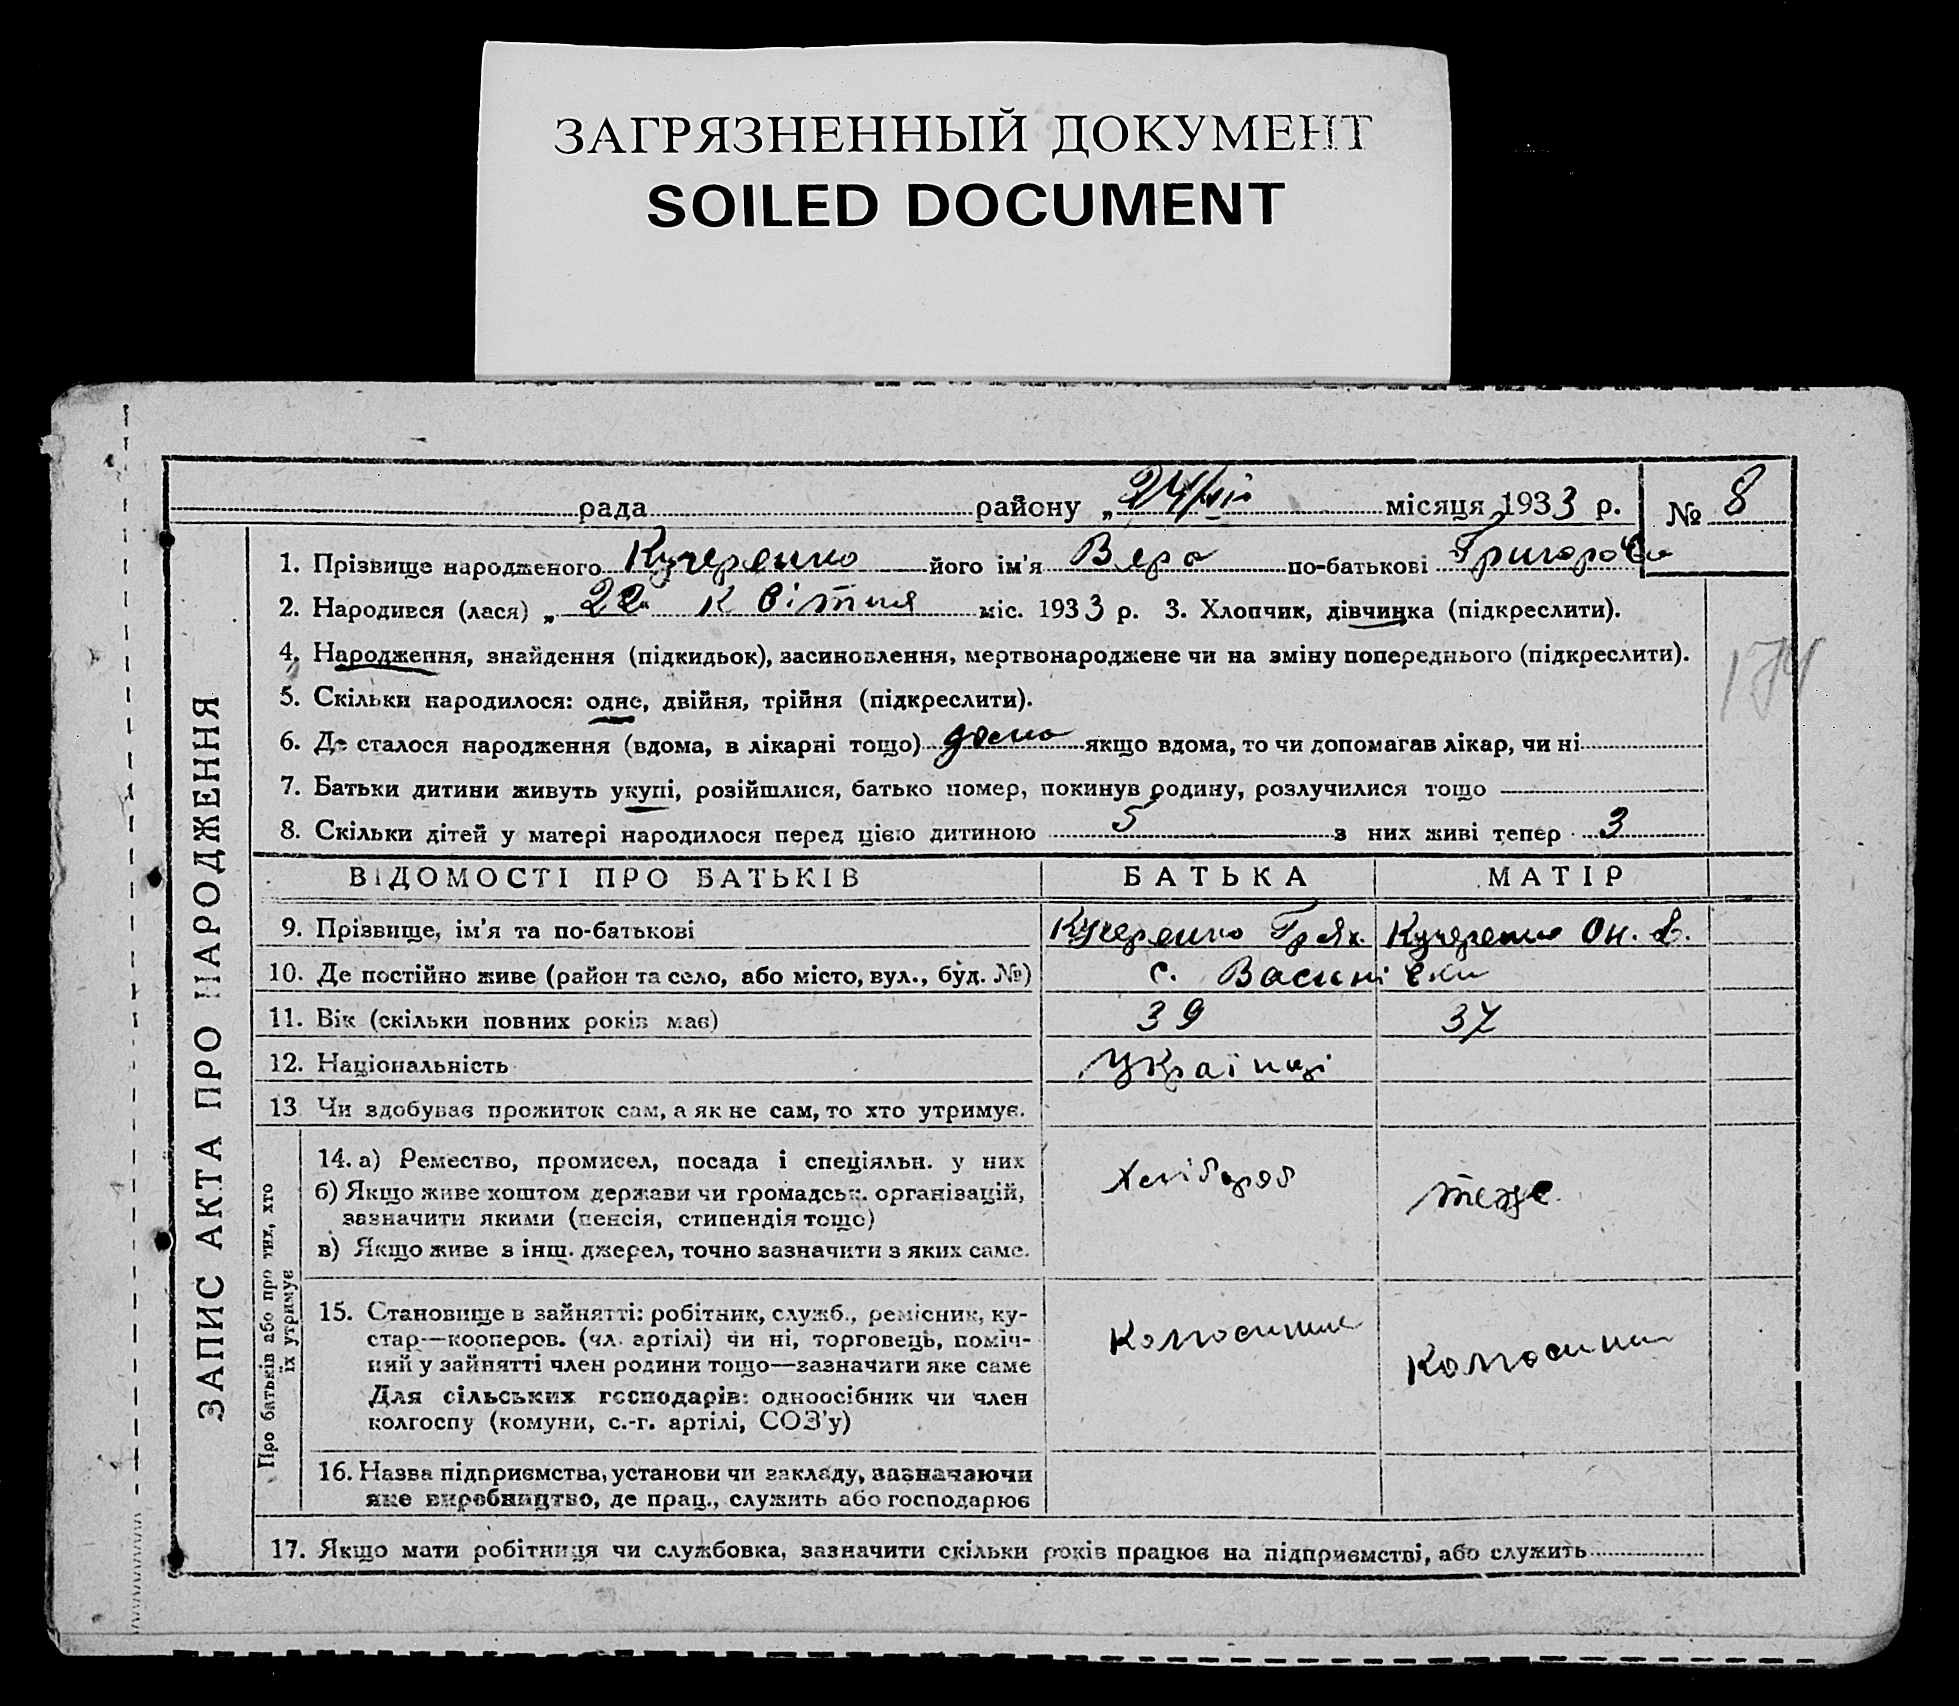 ЗАГРЯЗНЕННЫЙ ДОКУМЕНТ
SOILED DOCUMENT
рада района „24/VII місяця 1933 р. № 8
1. Прізвище народженого Кучеренко його ім'я Вера по-батькові Григоровна
2. Народився (лася) „22“ квітня міс. 1933 р. 3. Хлопчик, дівчинка (підкреслити).
4. Народження, знайдення (підкидьок), засиновлення, мертвонароджене чи на зміну попереднього (підкреслити).
174
5. Скільки народилося: одне, двійня, трійня (підкреслити).
6. Де сталося народження (вдома, в лікарні тощо) дома якщо вдома, то чи допомагав лікар, чи ні
7. Батьки дитини живуть укупі, розійшлися, батько помер, покинув родину, розлучилися тощо
8. Скільки дітей у матері народилося перед цією дитиною 5 з них живі тепер 3
ВІДОМОСТІ ПРО БАТЬКІВ БАТЬКА МАТІР
9. Прізвище, ім'я та по-батькові Кучеренко Гр. Як. Кучеренко Он.
10. Де постійно живе (район та село, або місто, вул., буд. №) с.
11. Вік (скільки повних років має) 39 37
12. Національність українці
13 Чи здобуває прожиток сам, а як не сам, то хто утримує.
14. а) Ремество, промисел, посада і спеціяльн. у них
б) Якщо живе коштом держави чи громадськ. організацій,
зазначити якими (пенсія, стипендія тощо)
в) Якщо живе з інш. джерел, точно зазначити з яких саме.
Хлібороб теже
15. Становище в зайнятті: робітник, служб., ремісник, ку-
стар—кооперов. (чл. артілі) чи ні, торговець, поміч-
ний у зайнятті член родини тощо—зазначити яке саме
Для сільських господарів: одноосібник чи член
колгоспу (комуни, с.-г. артілі, СОЗ'у)
16. Назва підприємства, установи чи закладу, зазначаючи
яке виробництво, де прац., служить або господарює
17. Якщо мати робітниця чи службовка, зазначити скільки років працює на підприємстві, або служить
ЗАПИС АКТА ПРО НАРОДЖЕННЯ
Про батьків або про тих, хто
їх утримує